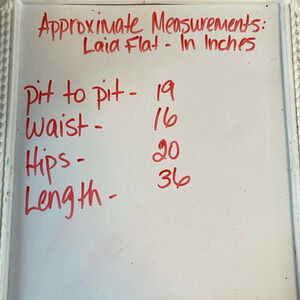 Approximate Measurements:
Laid Flat - In Inches
pit to pit - 19
Waist - 16
Hips - 20
Length - 36